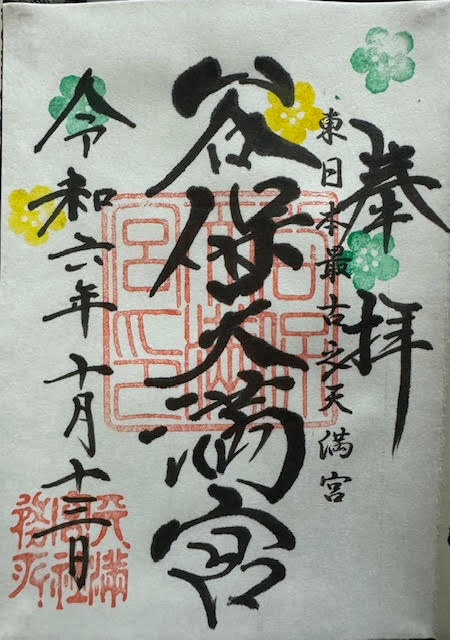 奉拝
東日本最古之天満宮
谷保天満宮
令和六年十月十三日
天満宮社務所